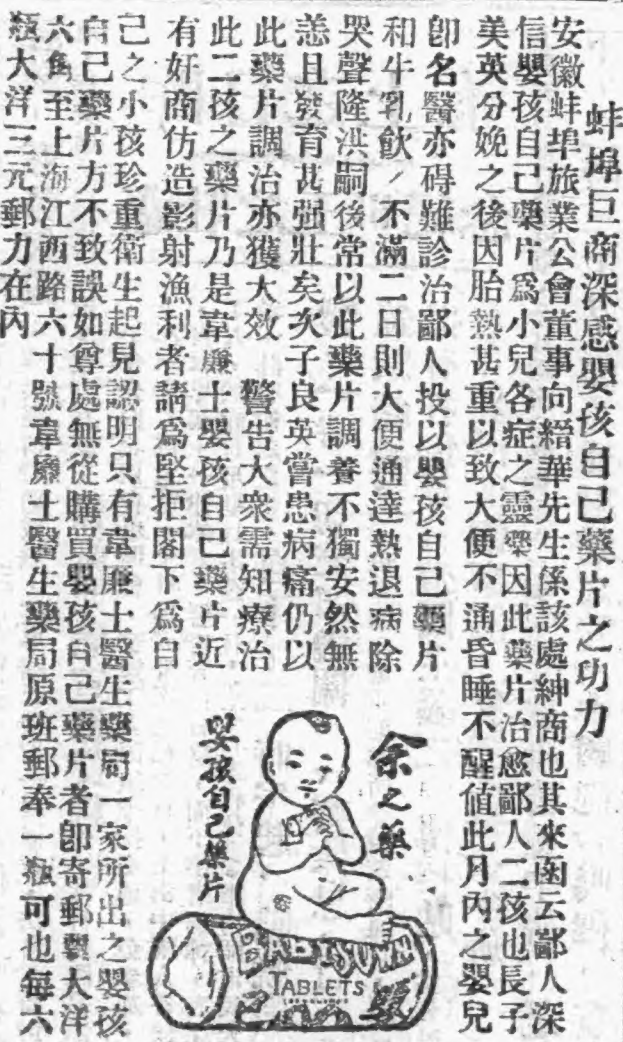 蚌埠巨商深感嬰孩自己藥片之功力
安徽蚌埠旅業公會董事向縉華先生係該處紳商也其來函云鄙人深
信嬰孩自己藥片爲小兒各症之靈藥因此藥片治愈鄙人二孩也長子
美英分娩之後因胎熱甚重以致大便不通昏睡不醒值此月內之嬰兒
卽名醫亦碍難診治鄙人投以嬰孩自己藥片
和牛乳飲ノ不滿二日則大便通達熱退病除
哭聲隆洪嗣後常以此藥片調養不獨安然無
恙且發育甚强壯矣次子良英嘗患病痛仍以
此藥片調治亦獲大效 警告大衆需知療治
此二孩之藥片乃是韋廉士嬰孩自己藥片近
有奸商仿造影射漁利者請爲堅拒閣下爲自
己之小孩珍重衛生起見認明只有韋廉士醫生藥局一家所出之嬰孩
自己藥片方不致誤如尊處無從購買嬰孩自己藥片者卽寄郵票大洋
六角至上海江西路六十號韋廉士醫生藥局原班郵奉一瓶可也每六
瓶大洋三元郵力在內
余之藥
嬰孩自己藥片
TABLETS